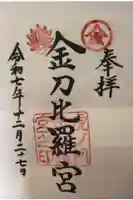 奉拝
金刀比羅宮
令和七年十二月二十七日